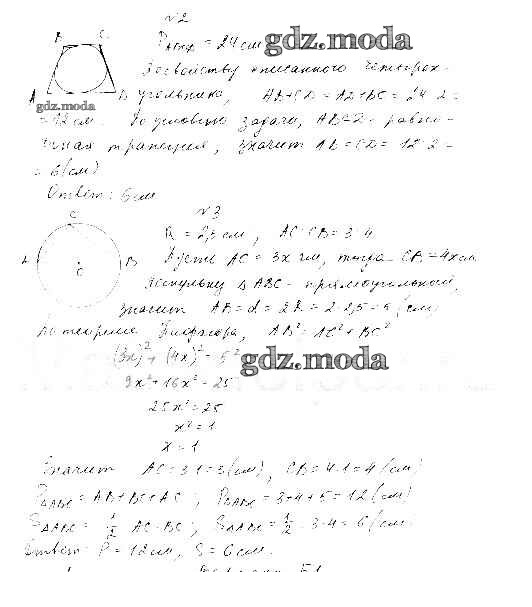 №2
B C
P_ABCD = 24 см
gdz.moda
По свойству описанного четырех-
A D угольника, AB+CD = AD+BC = 24:2=
gdz.moda
= 12 см. По условию задачи, ABCD - равно-
трапеция, значит AB = CD = 12:2 =
= 6 (см)
Ответ: 6 см
№3
C
R = 2,5 см, AC:CB = 3:4
A B Пусть AC = 3x см, тогда CB = 4x см
C
Поскольку △ABC - прямоугольный,
значит AB = d = 2R = 2·2,5 = 5 (см)
По теореме Пифагора, AB² = AC² + BC²
(3x)² + (4x)² = 5²
gdz.moda
9x² + 16x² = 25
25x² = 25
x² = 1
x = 1
Значит AC = 3·1 = 3 (см), CB = 4·1 = 4 (см)
P△ABC = AB+BC+AC; P△ABC = 3+4+5 = 12 (см)
S△ABC = 1/2 AC·BC; S△ABC = 1/2·3·4 = 6 (см)
Ответ: P = 12 см, S = 6 см.